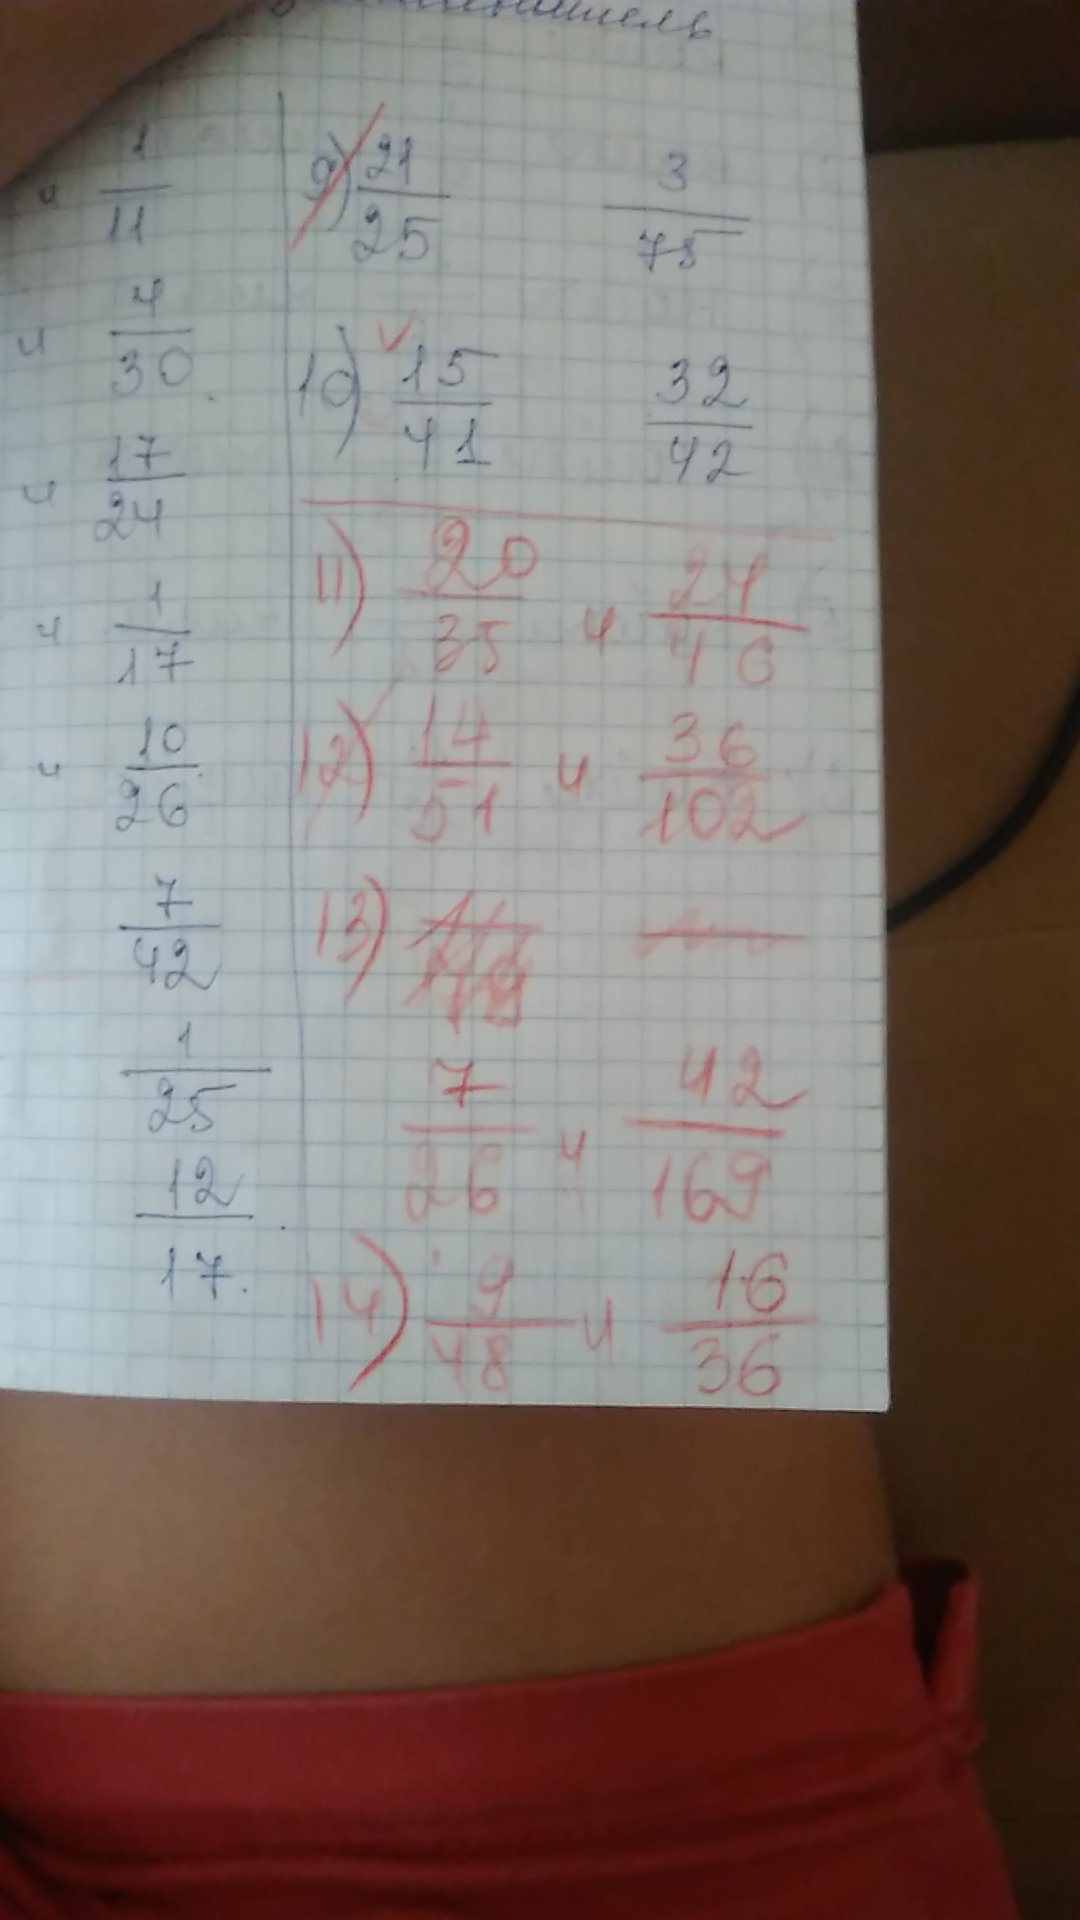 и 1/11
и 4/30
и 17/24
и 1/17
и 10/26
7/42
1/25
12/17.
9) 21/25 3/75
10) 15/41 32/42
11) 20/35 и 24/46
12) 14/51 и 36/102
13)
7/26 и 42/169
14) 9/48 и 16/36